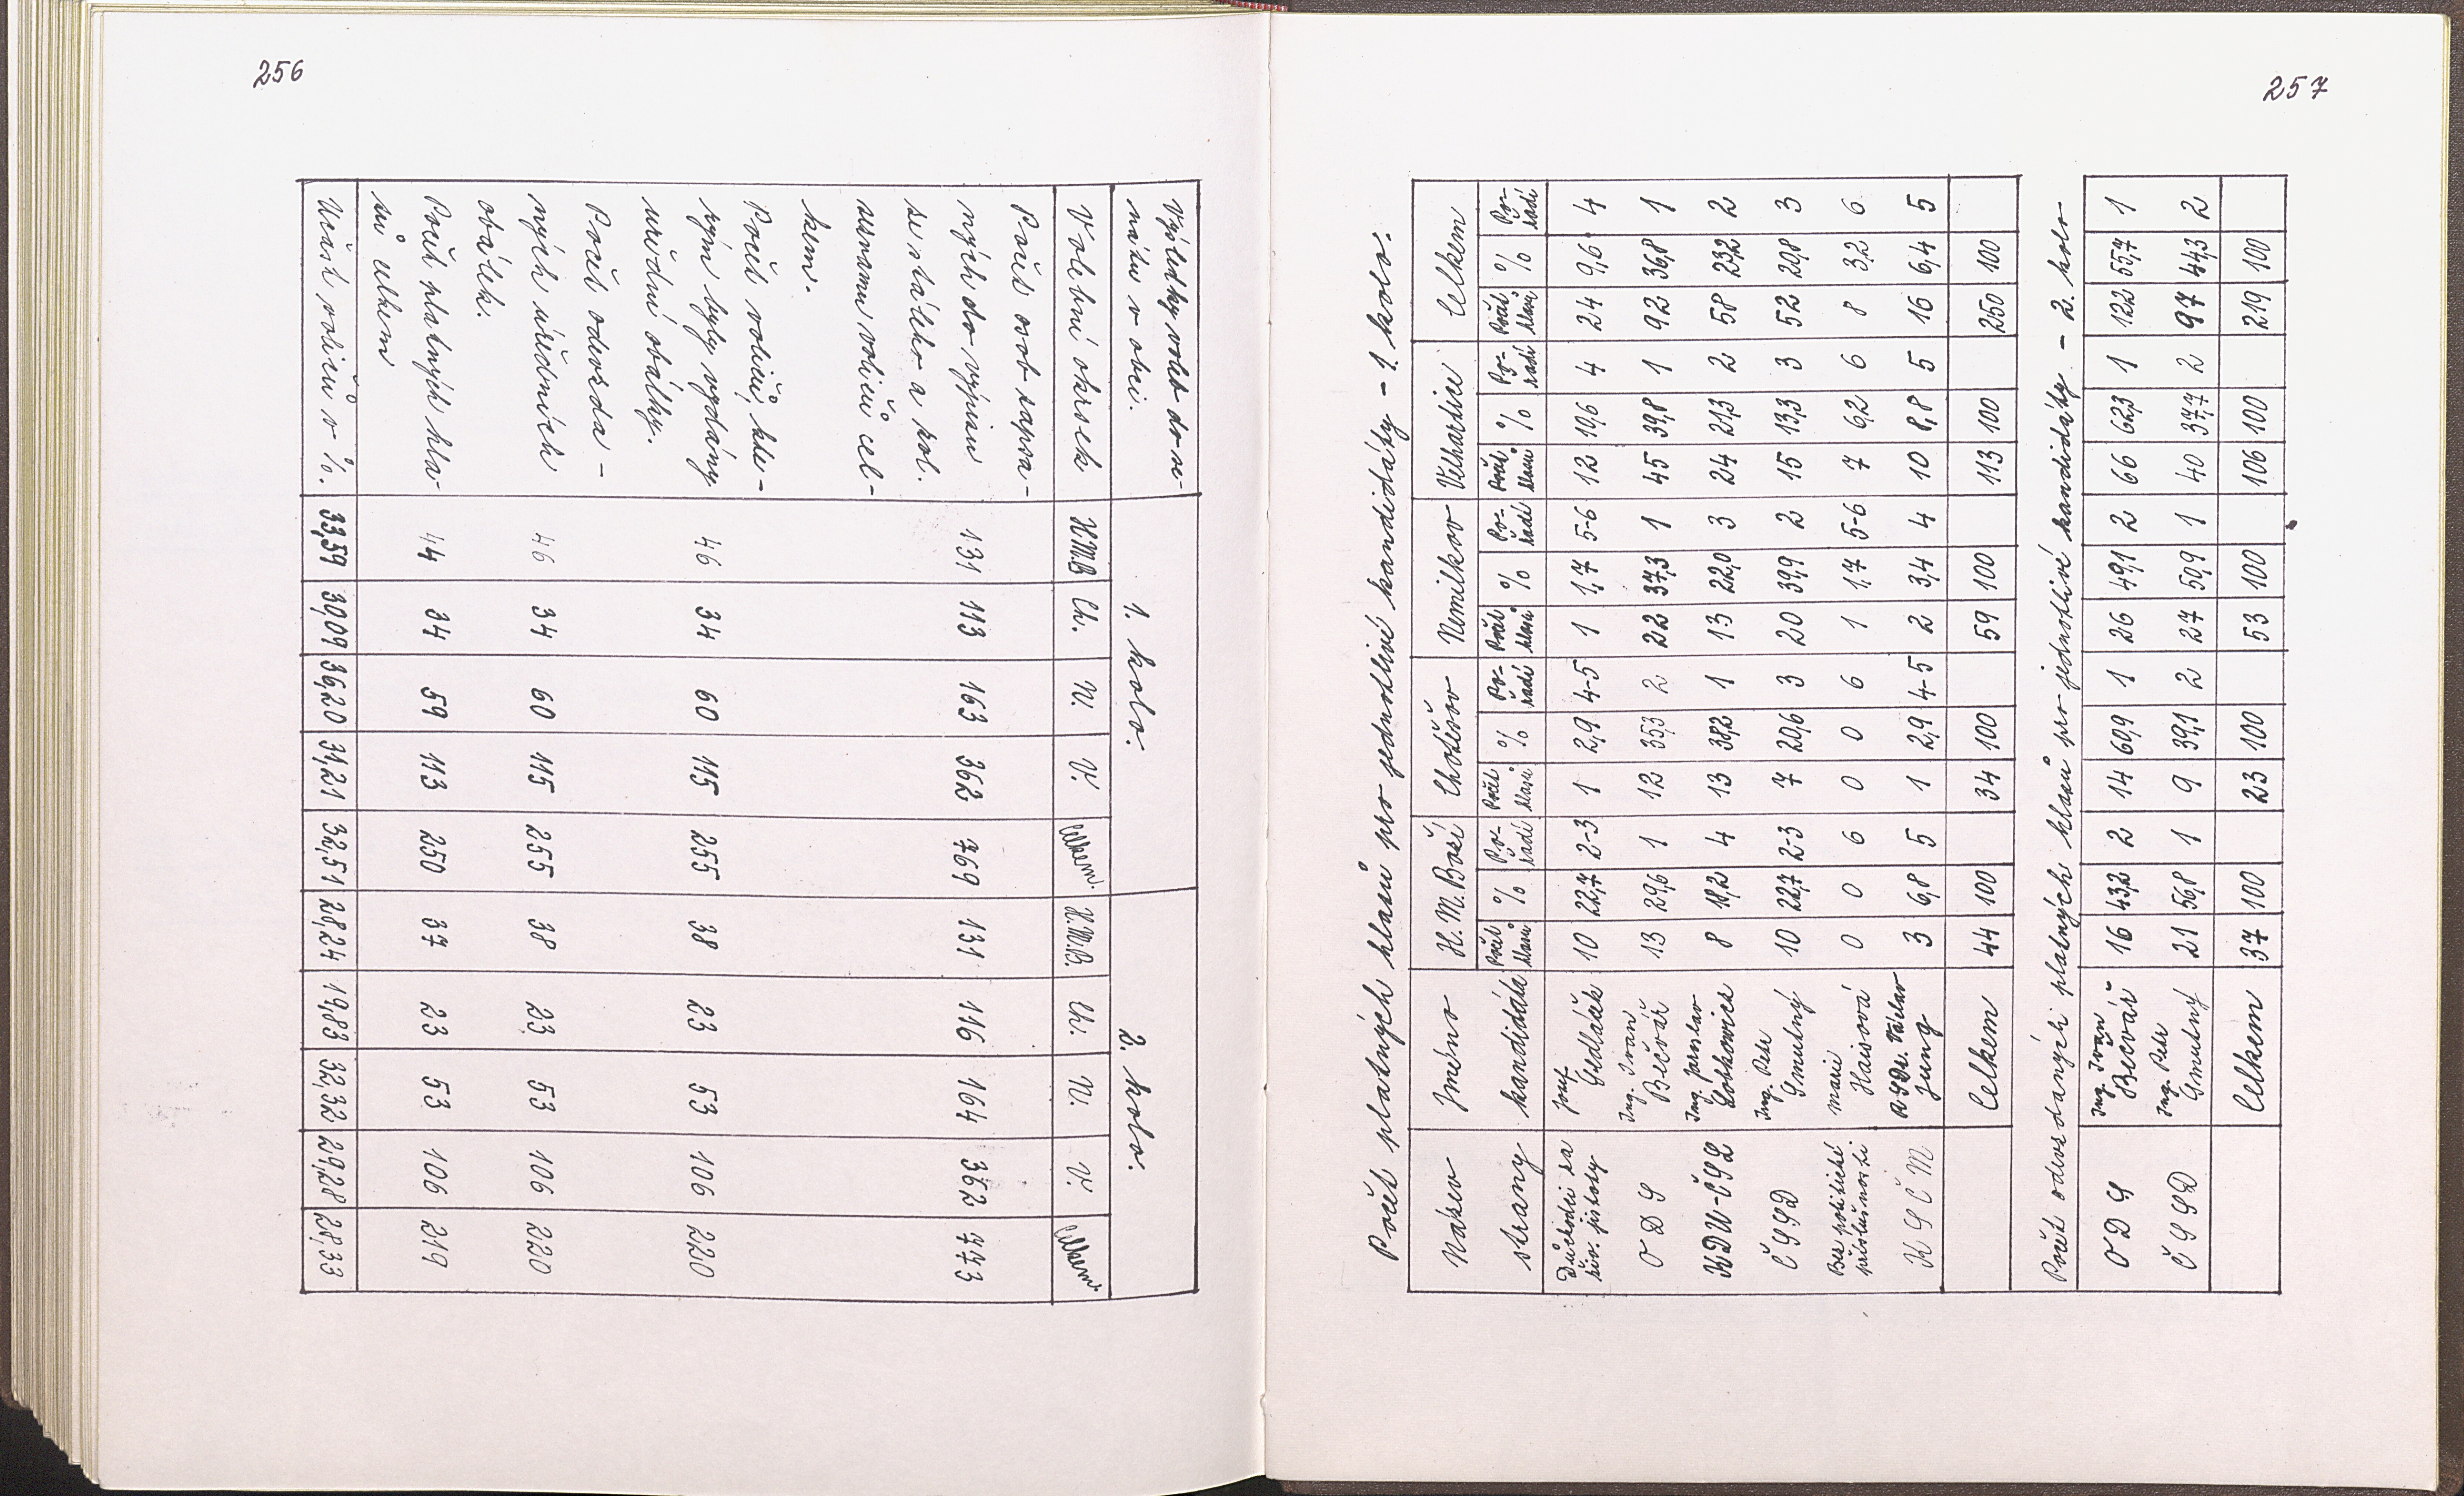 256
Výsledky voleb do se-
nátu v obci. 1. kolo. 2. kolo.
Volební okrsek H.M.B Ch. N. V. Celkem. H.M.B. Ch. N. V. Celkem.
Počet osob zapsa-
ných do výpisu 131 113 163 362 769 131 116 164 362 773
ze stálého a
seznamu voličů cel-
kem.
Počet voličů, kte-
rým byly vydány 46 34 60 115 255 38 23 53 106 220
úřední obálky.
Počet odevzda-
ných úředních 46 34 60 115 255 38 23 53 106 220
obálek.
Počet platných hla- 44 34 59 113 250 37 23 53 106 219
sů celkem
Účast voličů v %. 33,59 30,09 36,20 31,21 32,51 28,24 19,83 32,32 29,28 28,33
257
Počet platných hlasů pro jednotlivé kandidáty - 1. kolo.
Název Jméno H. M. Boží Chotěšov Nemilkov Velhartice Celkem
strany kandidáta Počet hlasů % Po-řadí Počet hlasů % Po-řadí Počet hlasů % Po-řadí Počet hlasů % Po-řadí Počet hlasů % Po-řadí
Důchodci za Josef
živ. jistoty Sedláček 10 22,7 2-3 1 2,9 4-5 1 1,7 5-6 12 10,6 4 24 9,6 4
Ing. Ivan
ODS Bečvář 13 29,6 1 12 35,3 2 22 37,3 1 45 39,8 1 92 36,8 1
Ing. Jaroslav
KDU-ČSL Lobkowicz 8 18,2 4 13 38,2 1 13 22,0 3 24 21,3 2 58 23,2 2
Ing. Petr
ČSSD Smutný 10 22,7 2-3 7 20,6 3 20 39,9 2 15 13,3 3 52 20,8 3
Bez politické Marie
příslušnosti Haisová 0 0 6 0 0 6 1 1,7 5-6 7 6,2 6 8 3,2 6
RSDr. Václav
KSČM Jung 3 6,8 5 1 2,9 4-5 2 3,4 4 10 8,8 5 16 6,4 5
Celkem 44 100 34 100 59 100 113 100 250 100
Počet odevzdaných platných hlasů pro jednotlivé kandidáty - 2. kolo
Ing. Ivan
ODS Bečvář 16 43,2 2 14 60,9 1 26 49,1 2 66 62,3 1 122 55,7 1
Ing. Petr
ČSSD Smutný 21 56,8 1 9 39,1 2 27 50,9 1 40 37,7 2 97 44,3 2
Celkem 37 100 23 100 53 100 106 100 219 100